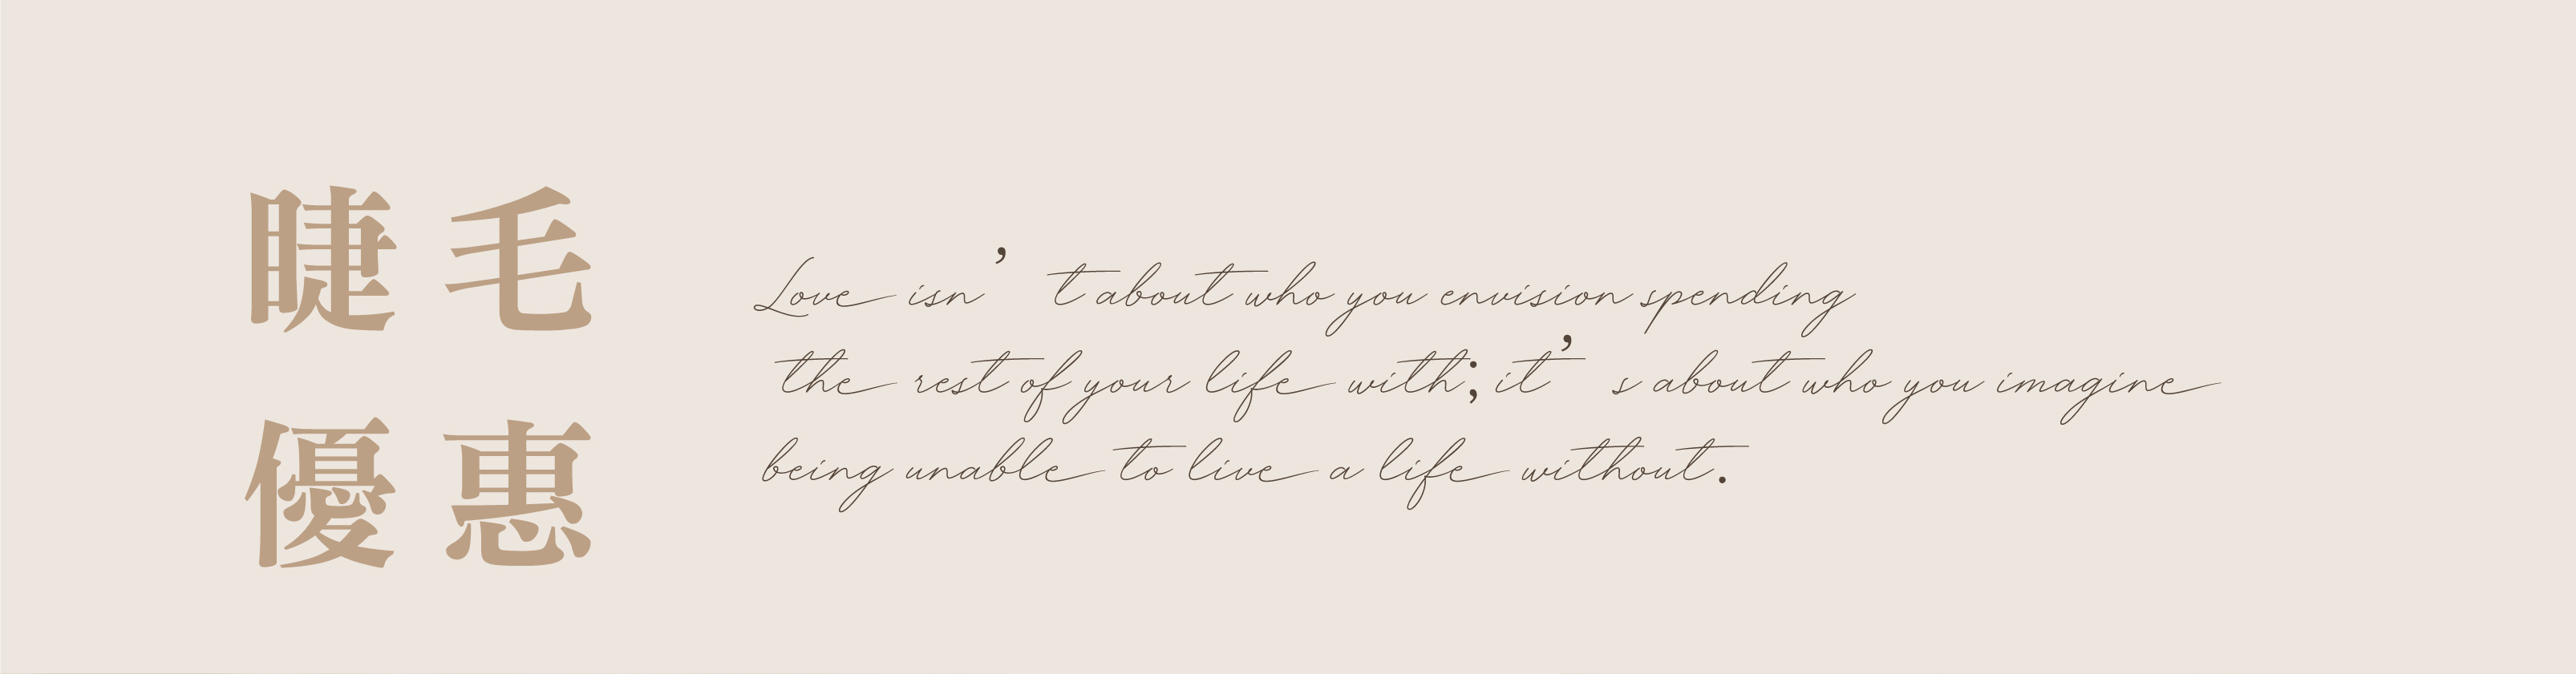 睫毛
優惠
Love isn’t about who you envision spending
the rest of your life with; it’s about who you imagine
being unable to live a life without.